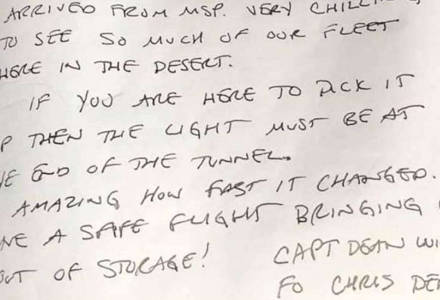 ARRIVED FROM MSP. VERY CHILLIN
TO SEE SO MUCH OF OUR FLEET
HERE IN THE DESERT.
IF YOU ARE HERE TO PICK IT
P THEN THE LIGHT MUST BE AT
HE END OF THE TUNNEL.
AMAZING HOW FAST IT CHANGED.
VE A SAFE FLIGHT BRINGING
OUT OF STORAGE!
CAPT DEAN WI
FO CHRIS DE